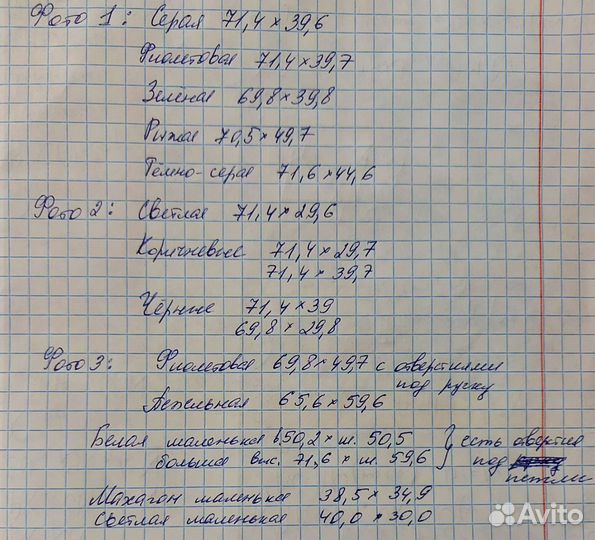 Фото 1: Серая 71,4 × 39,6
Фиолетовая 71,4 × 39,7
Зеленая 69,8 × 39,8
Рыжая 70,5 × 49,7
Тёмно-серая 71,6 × 44,6
Фото 2: Светлая 71,4 × 29,6
Коричневые 71,4 × 29,7
71,4 × 39,7
Чёрные 71,4 × 39
69,8 × 29,8
Фото 3: Фиолетовая 69,8 × 49,7 с отверстиями
под ручку
Пепельная 65,6 × 59,6
Белая маленькая в.50,2 × ш. 50,5 } есть отверстия
большая выс. 71,6 × ш. 59,6 } под
петли
Махагон маленькая 38,5 × 34,9
Светлая маленькая 40,0 × 30,0
Avito